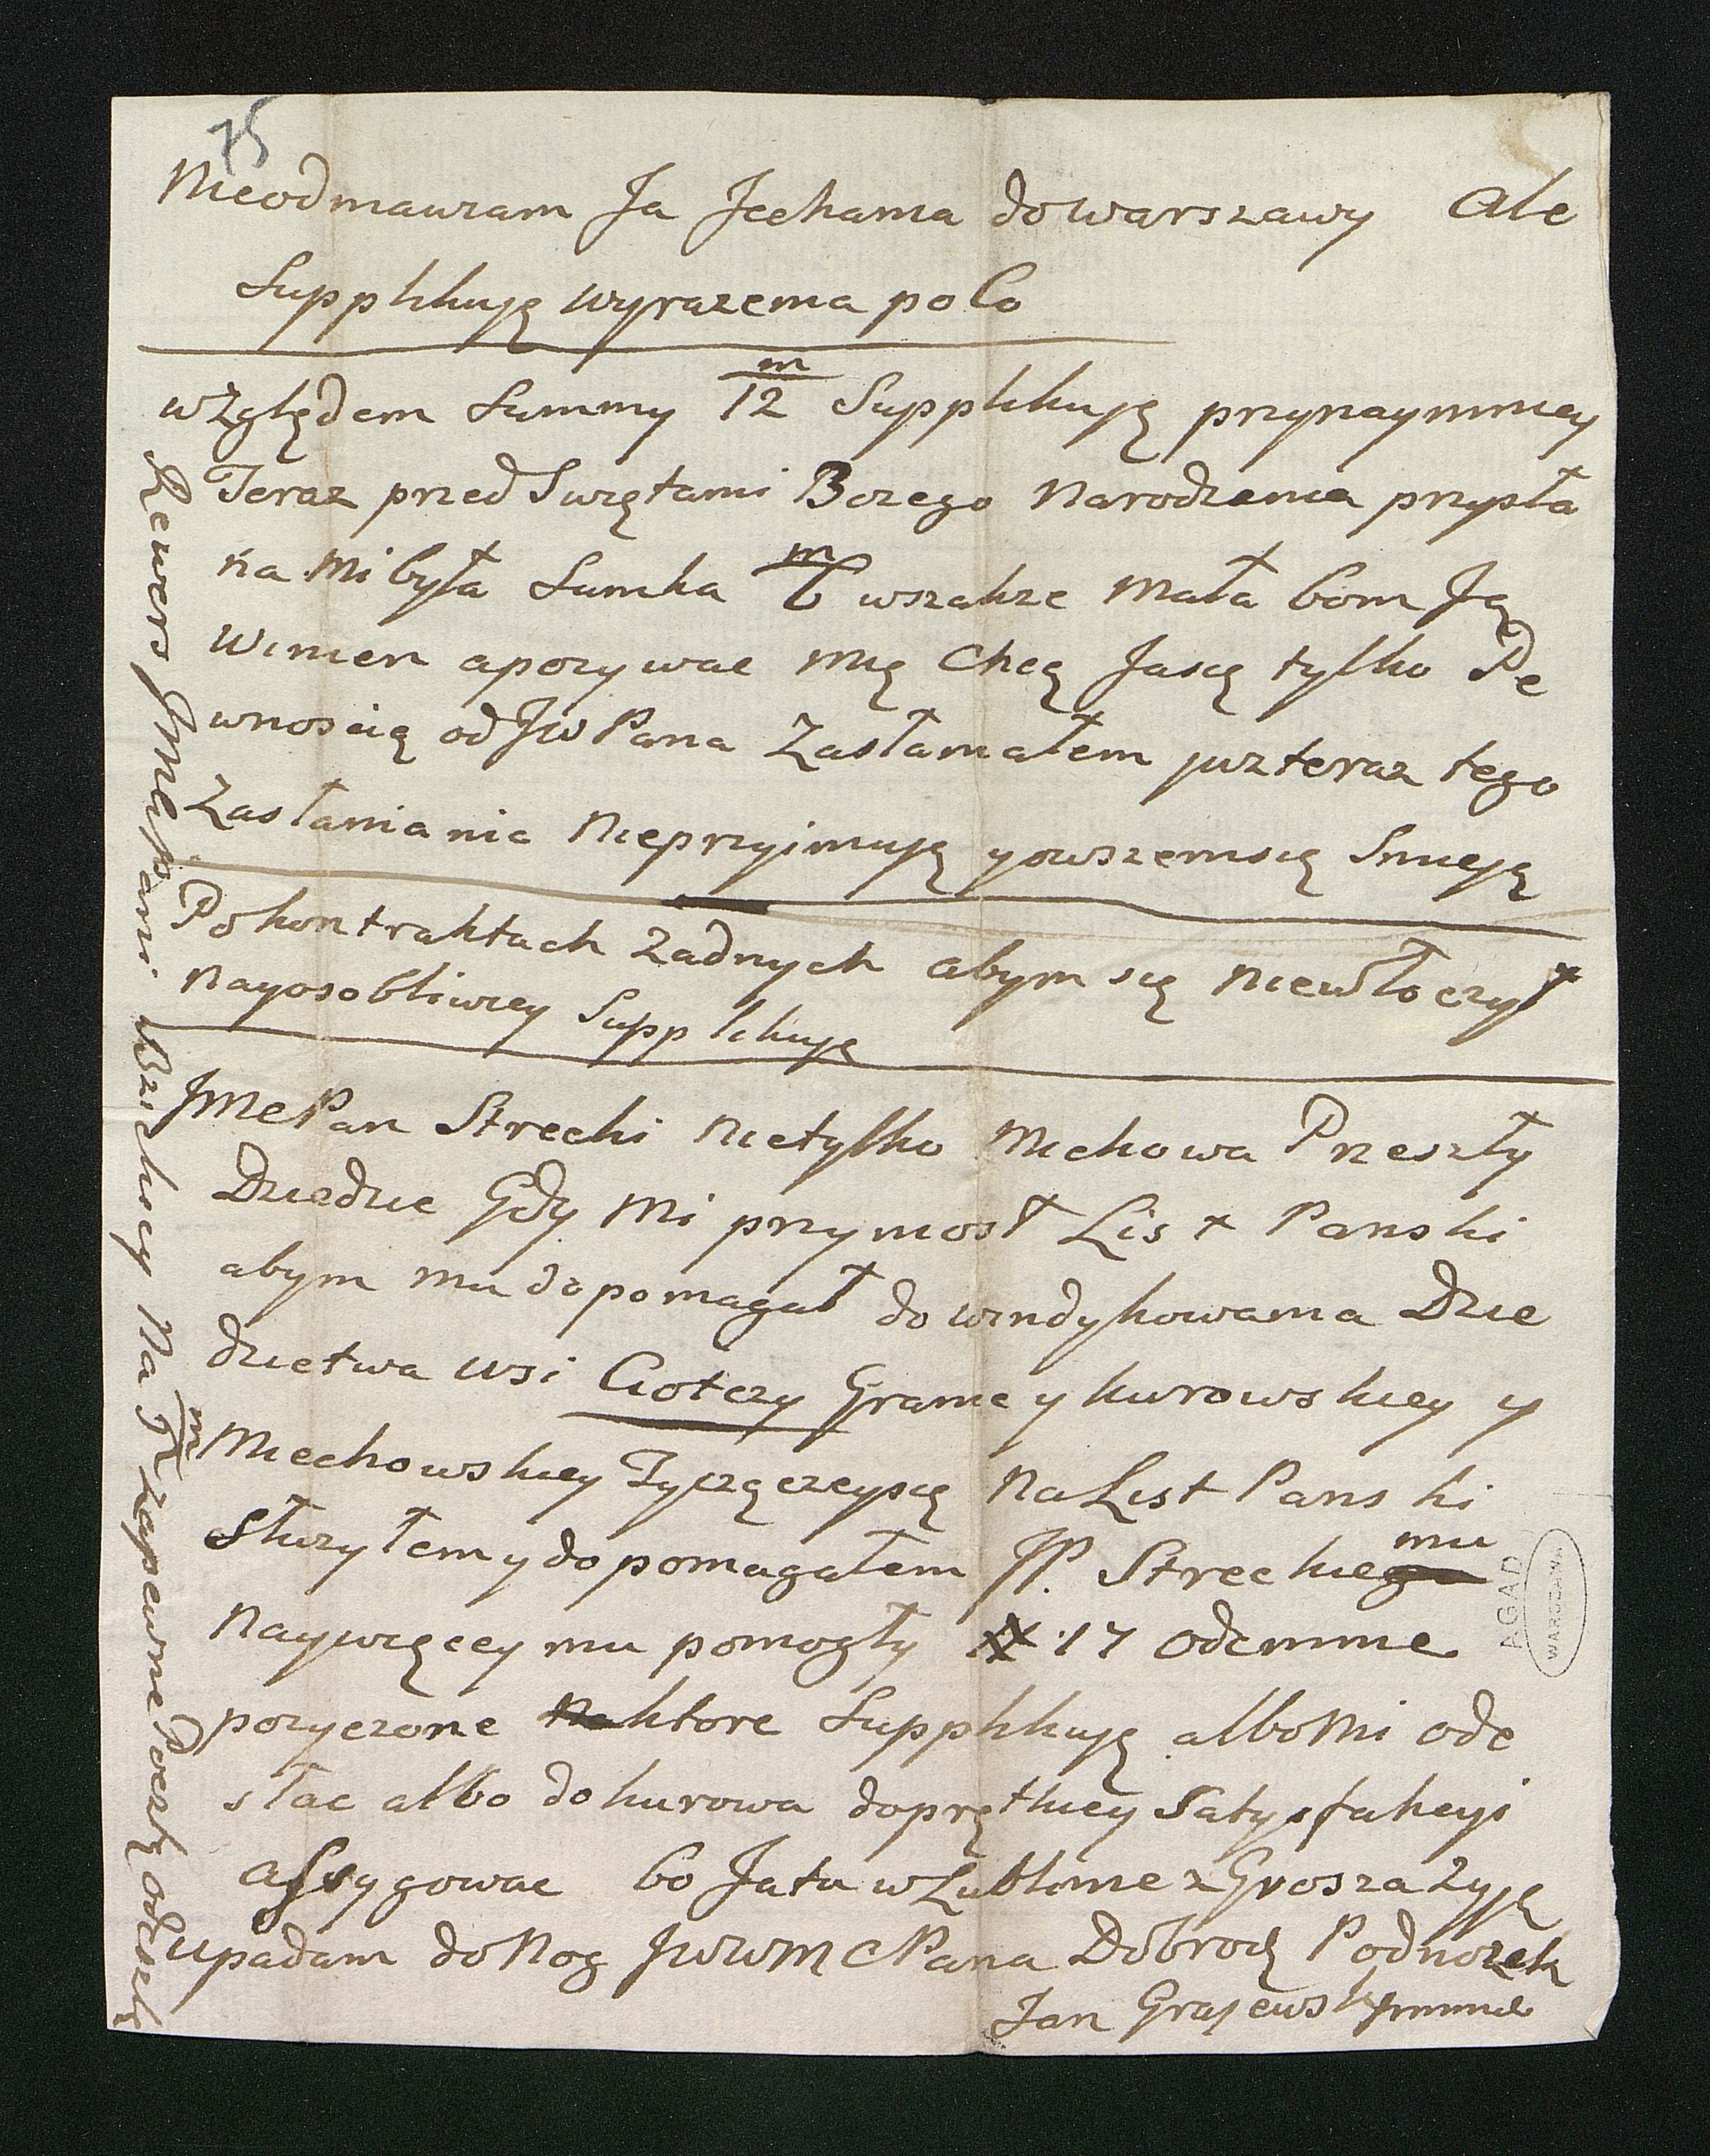 75
Nieodmawiam Ja Jechania do Warszawy Ale
Supplikuję wyrazenia po Co
względem Summy m/12 Supplikuję przynaymniey
Teraz przed Swiętami Bozego Narodzenia przysła
na mi była Sumka m/6 wszakze Mała bom Ją
Winien a pozywac mię Chcą Jasię tylko Pe
wnoscią od JWPana Zasłaniałem juz teraz tego
Zasłaniania Nieprzyimują y owszem się Smieją
Po kontraktach Zadnych abym się Niewłoczył
Nayosobliwiey Supplikuję
JMcPan Strecki Nietylko Michowa Przeszły
Dziedzic Gdy Mi przyniosł List Panski
abym mu dopomagał do windykowania Dzie
dzictwa Wsi Ciotczy Granic y kurowskiey y
Miechowskiey Tyczączeysię Na List Panski
Słuzyłem y dopomagałem JP. Streckiemu
Naywięcey mu pomogły # 17 odemnie
pozyczone ktore Supplikuję albo Mi ode
słac albo do kurowa do prętkiey Satysfakcyi
assygowac bo Ja tu w Lublinie z Grosza Zyję
Upadam do Nog JWWMCPana Dobrodz Podnozek
Jan Grajewski
Rewers JMci Pani Brzeskiey Na m/ zapewne Pocztą odeszlę
AGAD
WARSZAWA